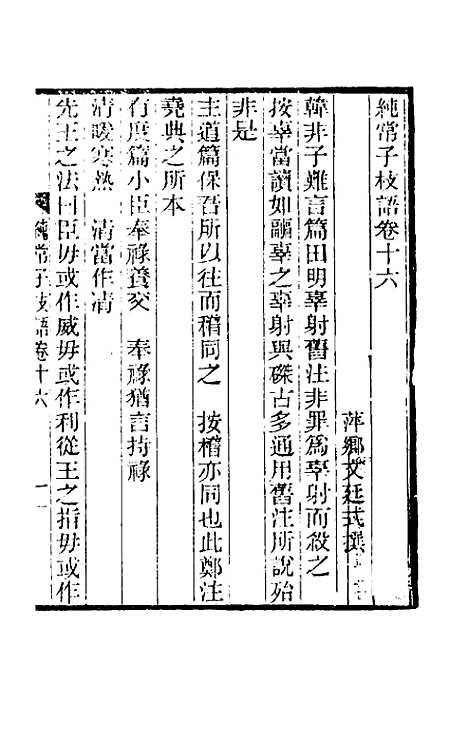 純常子枝語卷十六
萍鄉文廷式撰
韓非子難言篇田明辜射舊注非罪爲辜射而殺之
按辜當讀如疈辜之辜射與磔古多通用舊注所說殆
非是
主道篇保吾所以往而稽同之　按稽亦同也此鄭注
堯典之所本
有度篇小臣奉祿養交　奉祿猶言持祿
清暖寒熱　清當作凊
先王之法曰臣毋或作威毋或作利從王之指毋或作
純常子枝語卷十六　一